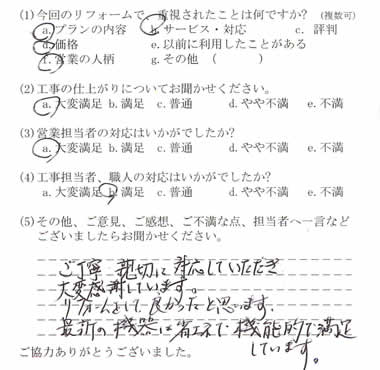 (1)今回のリフォームで、重視されたことは何ですか? (複数可)
a.プランの内容 b.サービス・対応 c. 評判
d.価格 e.以前に利用したことがある
f.営業の人柄 g.その他 ( )
(2)工事の仕上がりについてお聞かせください。
a.大変満足 b.満足 c.普通 d.やや不満 e.不満
(3)営業担当者の対応はいかがでしたか?
a.大変満足 b.満足 c.普通 d.やや不満 e.不満
(4)工事担当者、職人の対応はいかがでしたか?
a.大変満足 b.満足 c.普通 d.やや不満 e.不満
(5)その他、ご意見、ご感想、ご不満な点、担当者へ一言など
ございましたらお聞かせください。
ご丁寧 親切に対応していただき
大変感謝しています。
リフォームして良かったと思います。
最新の機器は省エネで機能的で満足
しています。
ご協力ありがとうございました。